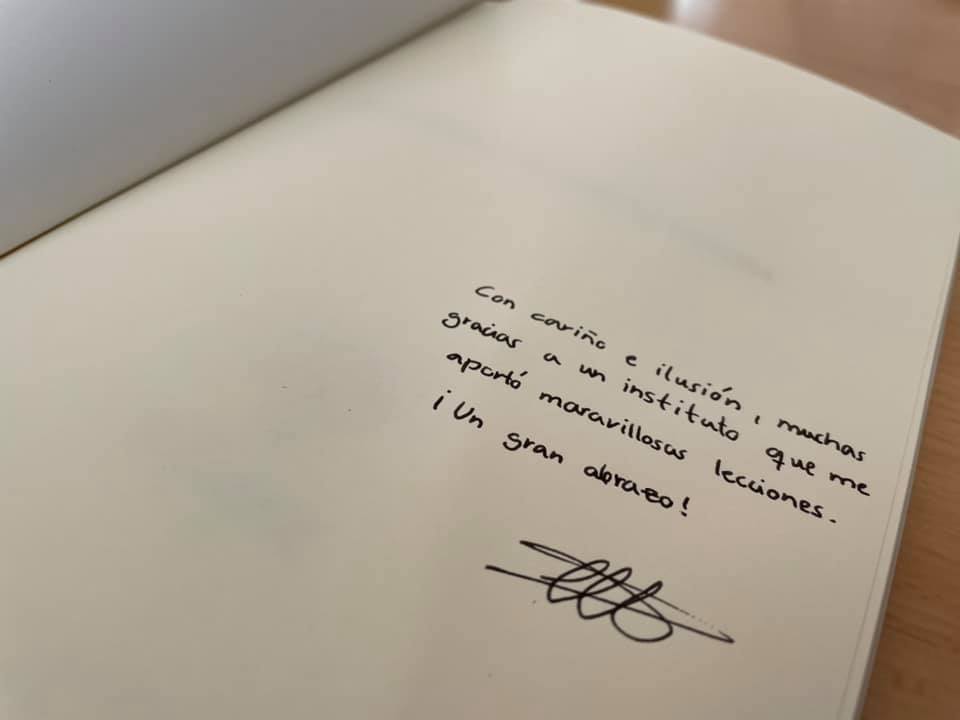 Con cariño e ilusión, muchas
gracias a un instituto que me
aportó maravillosas lecciones.
¡Un gran abrazo!